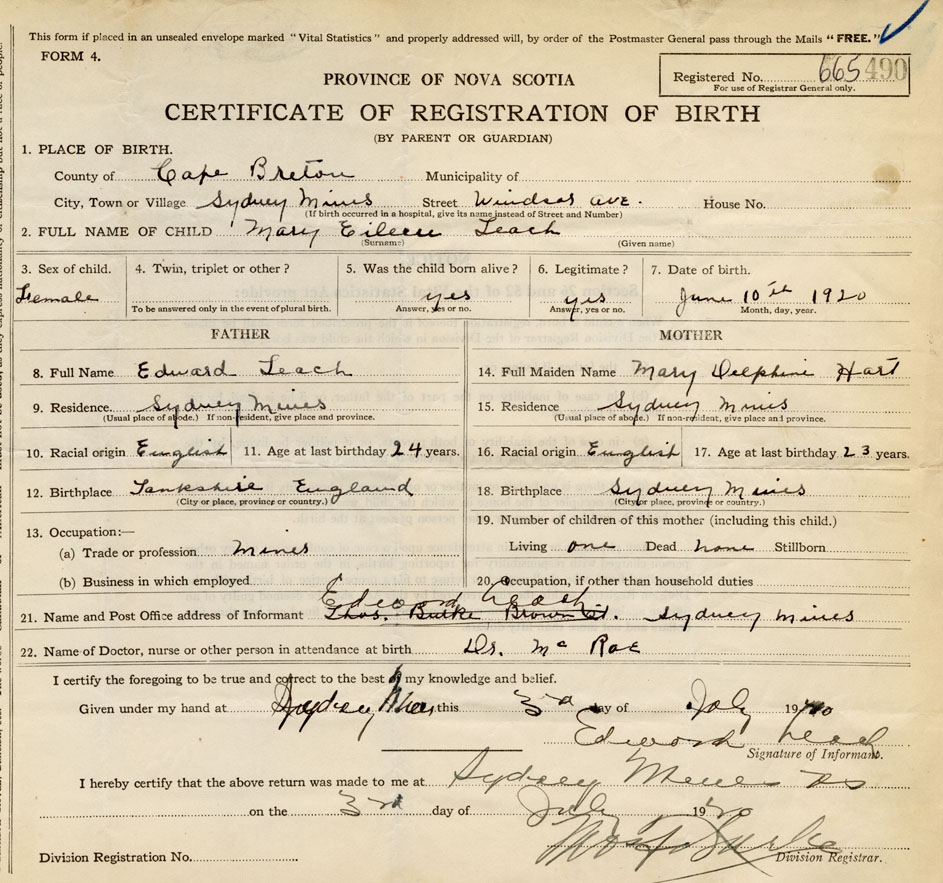 This form if placed in an unsealed envelope marked "Vital Statistics" and properly addressed will, by order of the Postmaster General pass through the Mails "FREE."
FORM 4.
Registered No. 665490
For use of Registrar General only.
PROVINCE OF NOVA SCOTIA
CERTIFICATE OF REGISTRATION OF BIRTH
(BY PARENT OR GUARDIAN)
1. PLACE OF BIRTH.
County of Cape Breton Municipality of
City, Town or Village Sydney Mines Street Windsor Ave. House No.
(If birth occurred in a hospital, give its name instead of Street and Number)
2. FULL NAME OF CHILD Mary Eileen Leach
(Surname) (Given name)
3. Sex of child. 4. Twin, triplet or other? 5. Was the child born alive? 6. Legitimate? 7. Date of birth.
Female yes yes June 10th 1920
To be answered only in the event of plural birth. Answer, yes or no. Answer, yes or no. Month, day, year.
FATHER MOTHER
8. Full Name Edward Leach 14. Full Maiden Name Mary Delphine Hart
9. Residence Sydney Mines 15. Residence Sydney Mines
(Usual place of abode.) If non-resident, give place and province. (Usual place of abode.) If non-resident, give place and province.
10. Racial origin English 11. Age at last birthday 24 years. 16. Racial origin English 17. Age at last birthday 23 years.
12. Birthplace England 18. Birthplace Sydney Mines
(City or place, province or country.) (City or place, province or country.)
13. Occupation:— 19. Number of children of this mother (including this child.)
(a) Trade or profession Miner Living one Dead none Stillborn
(b) Business in which employed 20. Occupation, if other than household duties
Edward Leach
21. Name and Post Office address of Informant Thos. Burke Brown St. Sydney Mines
22. Name of Doctor, nurse or other person in attendance at birth Dr. McRae
I certify the foregoing to be true and correct to the best of my knowledge and belief.
Given under my hand at Sydney Mines this 3rd day of July 1920
Edward Leach
Signature of Informant.
I hereby certify that the above return was made to me at Sydney Mines NS
on the 3rd day of July 1920
Division Registration No. Division Registrar.